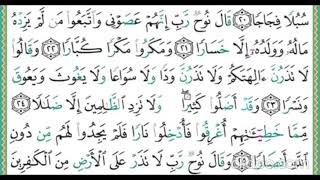 سُبُلًا فِجَاجًا ٢٠ قَالَ نُوحٌ رَّبِّ إِنَّهُمْ عَصَوْنِى وَٱتَّبَعُوا۟ مَن لَّمْ يَزِدْهُ
مَالُهُۥ وَوَلَدُهُۥٓ إِلَّا خَسَارًا ٢١ وَمَكَرُوا۟ مَكْرًا كُبَّارًا ٢٢ وَقَالُوا۟
لَا تَذَرُنَّ ءَالِهَتَكُمْ وَلَا تَذَرُنَّ وَدًّا وَلَا سُوَاعًا وَلَا يَغُوثَ وَيَعُوقَ
وَنَسْرًا ٢٣ وَقَدْ أَضَلُّوا۟ كَثِيرًا ۖ وَلَا تَزِدِ ٱلظَّـٰلِمِينَ إِلَّا ضَلَـٰلًا ٢٤
مِّمَّا خَطِيٓـَٔـٰتِهِمْ أُغْرِقُوا۟ فَأُدْخِلُوا۟ نَارًا فَلَمْ يَجِدُوا۟ لَهُم مِّن دُونِ
ٱللَّهِ أَنصَارًا ٢٥ وَقَالَ نُوحٌ رَّبِّ لَا تَذَرْ عَلَى ٱلْأَرْضِ مِنَ ٱلْكَـٰفِرِينَ